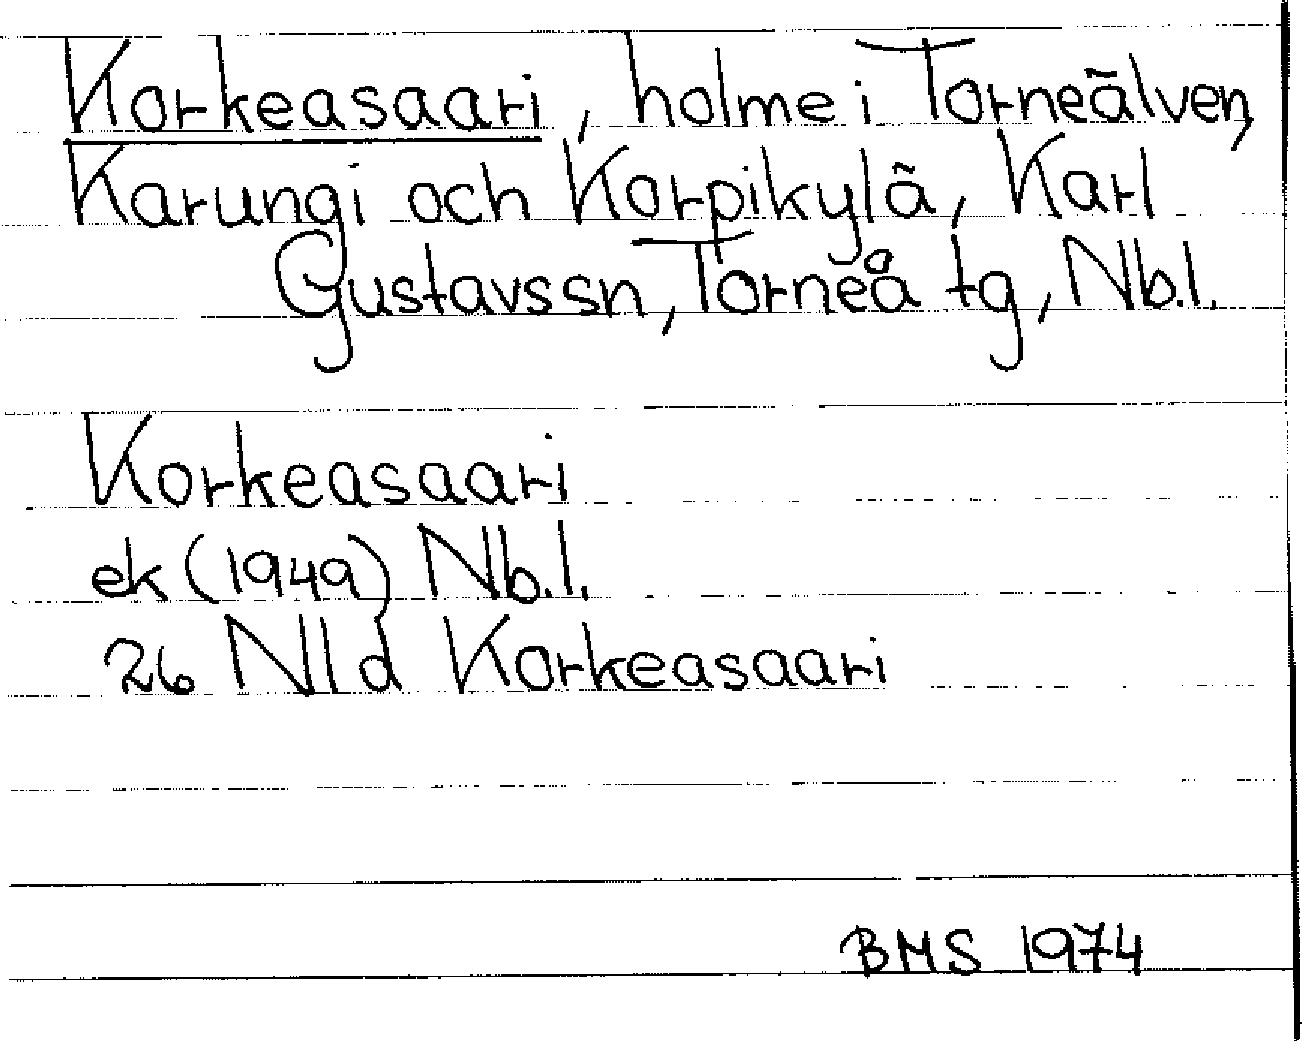 Korkeasaari, holme i Torneälven,
Karungi och Korpikylä, Karl
Gustavssn, Torneå tg, Nb.l.
Korkeasaari
ek (1949) Nb.l.
26 Nld Korkeasaari
BMS 1974